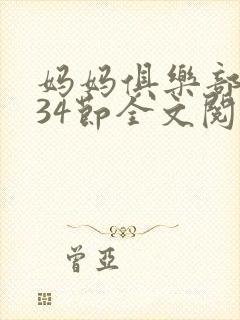 妈妈俱樂部
34節全文閱
曾亞